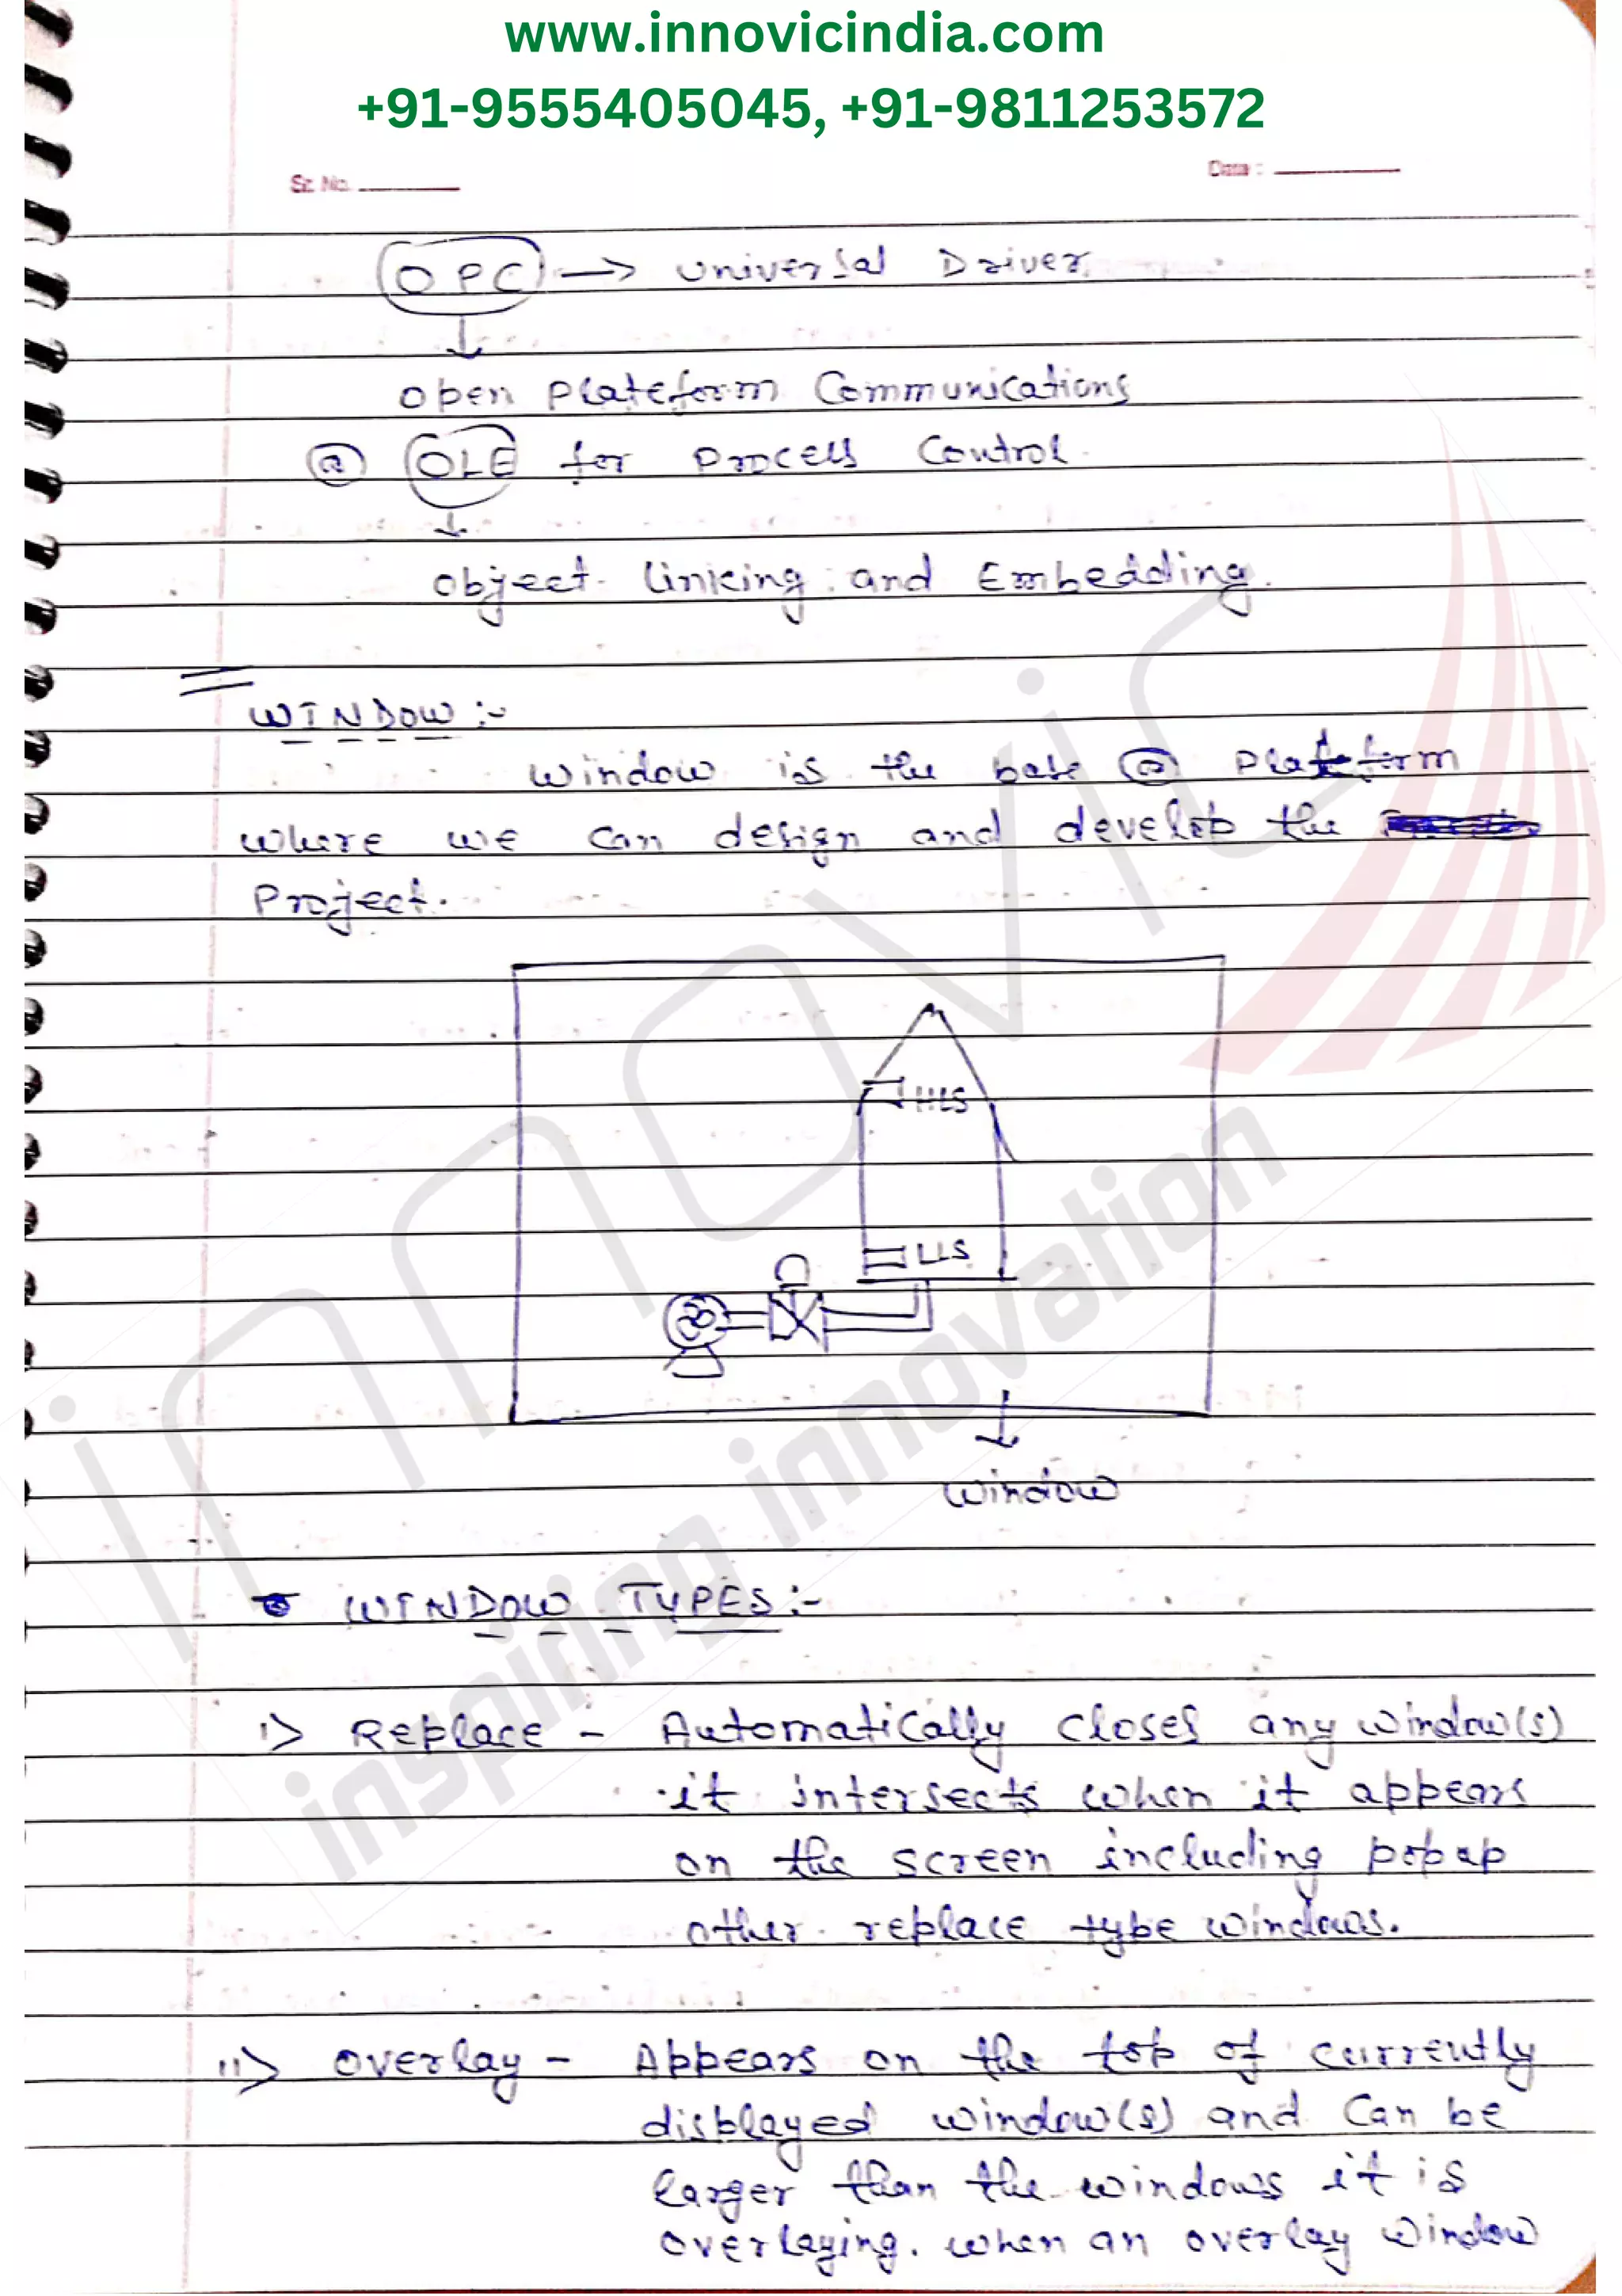 www.innovicindia.com
+91-9555405045, +91-9811253572
Sr. No.
Date :
OPC → Universal Driver
open Plateform Communications
or OLE for Process Control.
object linking and Embedding.
WINDOW :-
Window is the base or Plateform
where we can design and develop the
Project.
HLS
LLS
window
WINDOW TYPES :-
i> Replace - Automatically closes any window(s)
it intersects when it appears
on the screen including popup
other replace type windows.
ii> Overlay - Appears on the top of currently
displayed window(s) and can be
larger than the windows it is
overlaying. when an overlay window
innovic
inspiring innovation